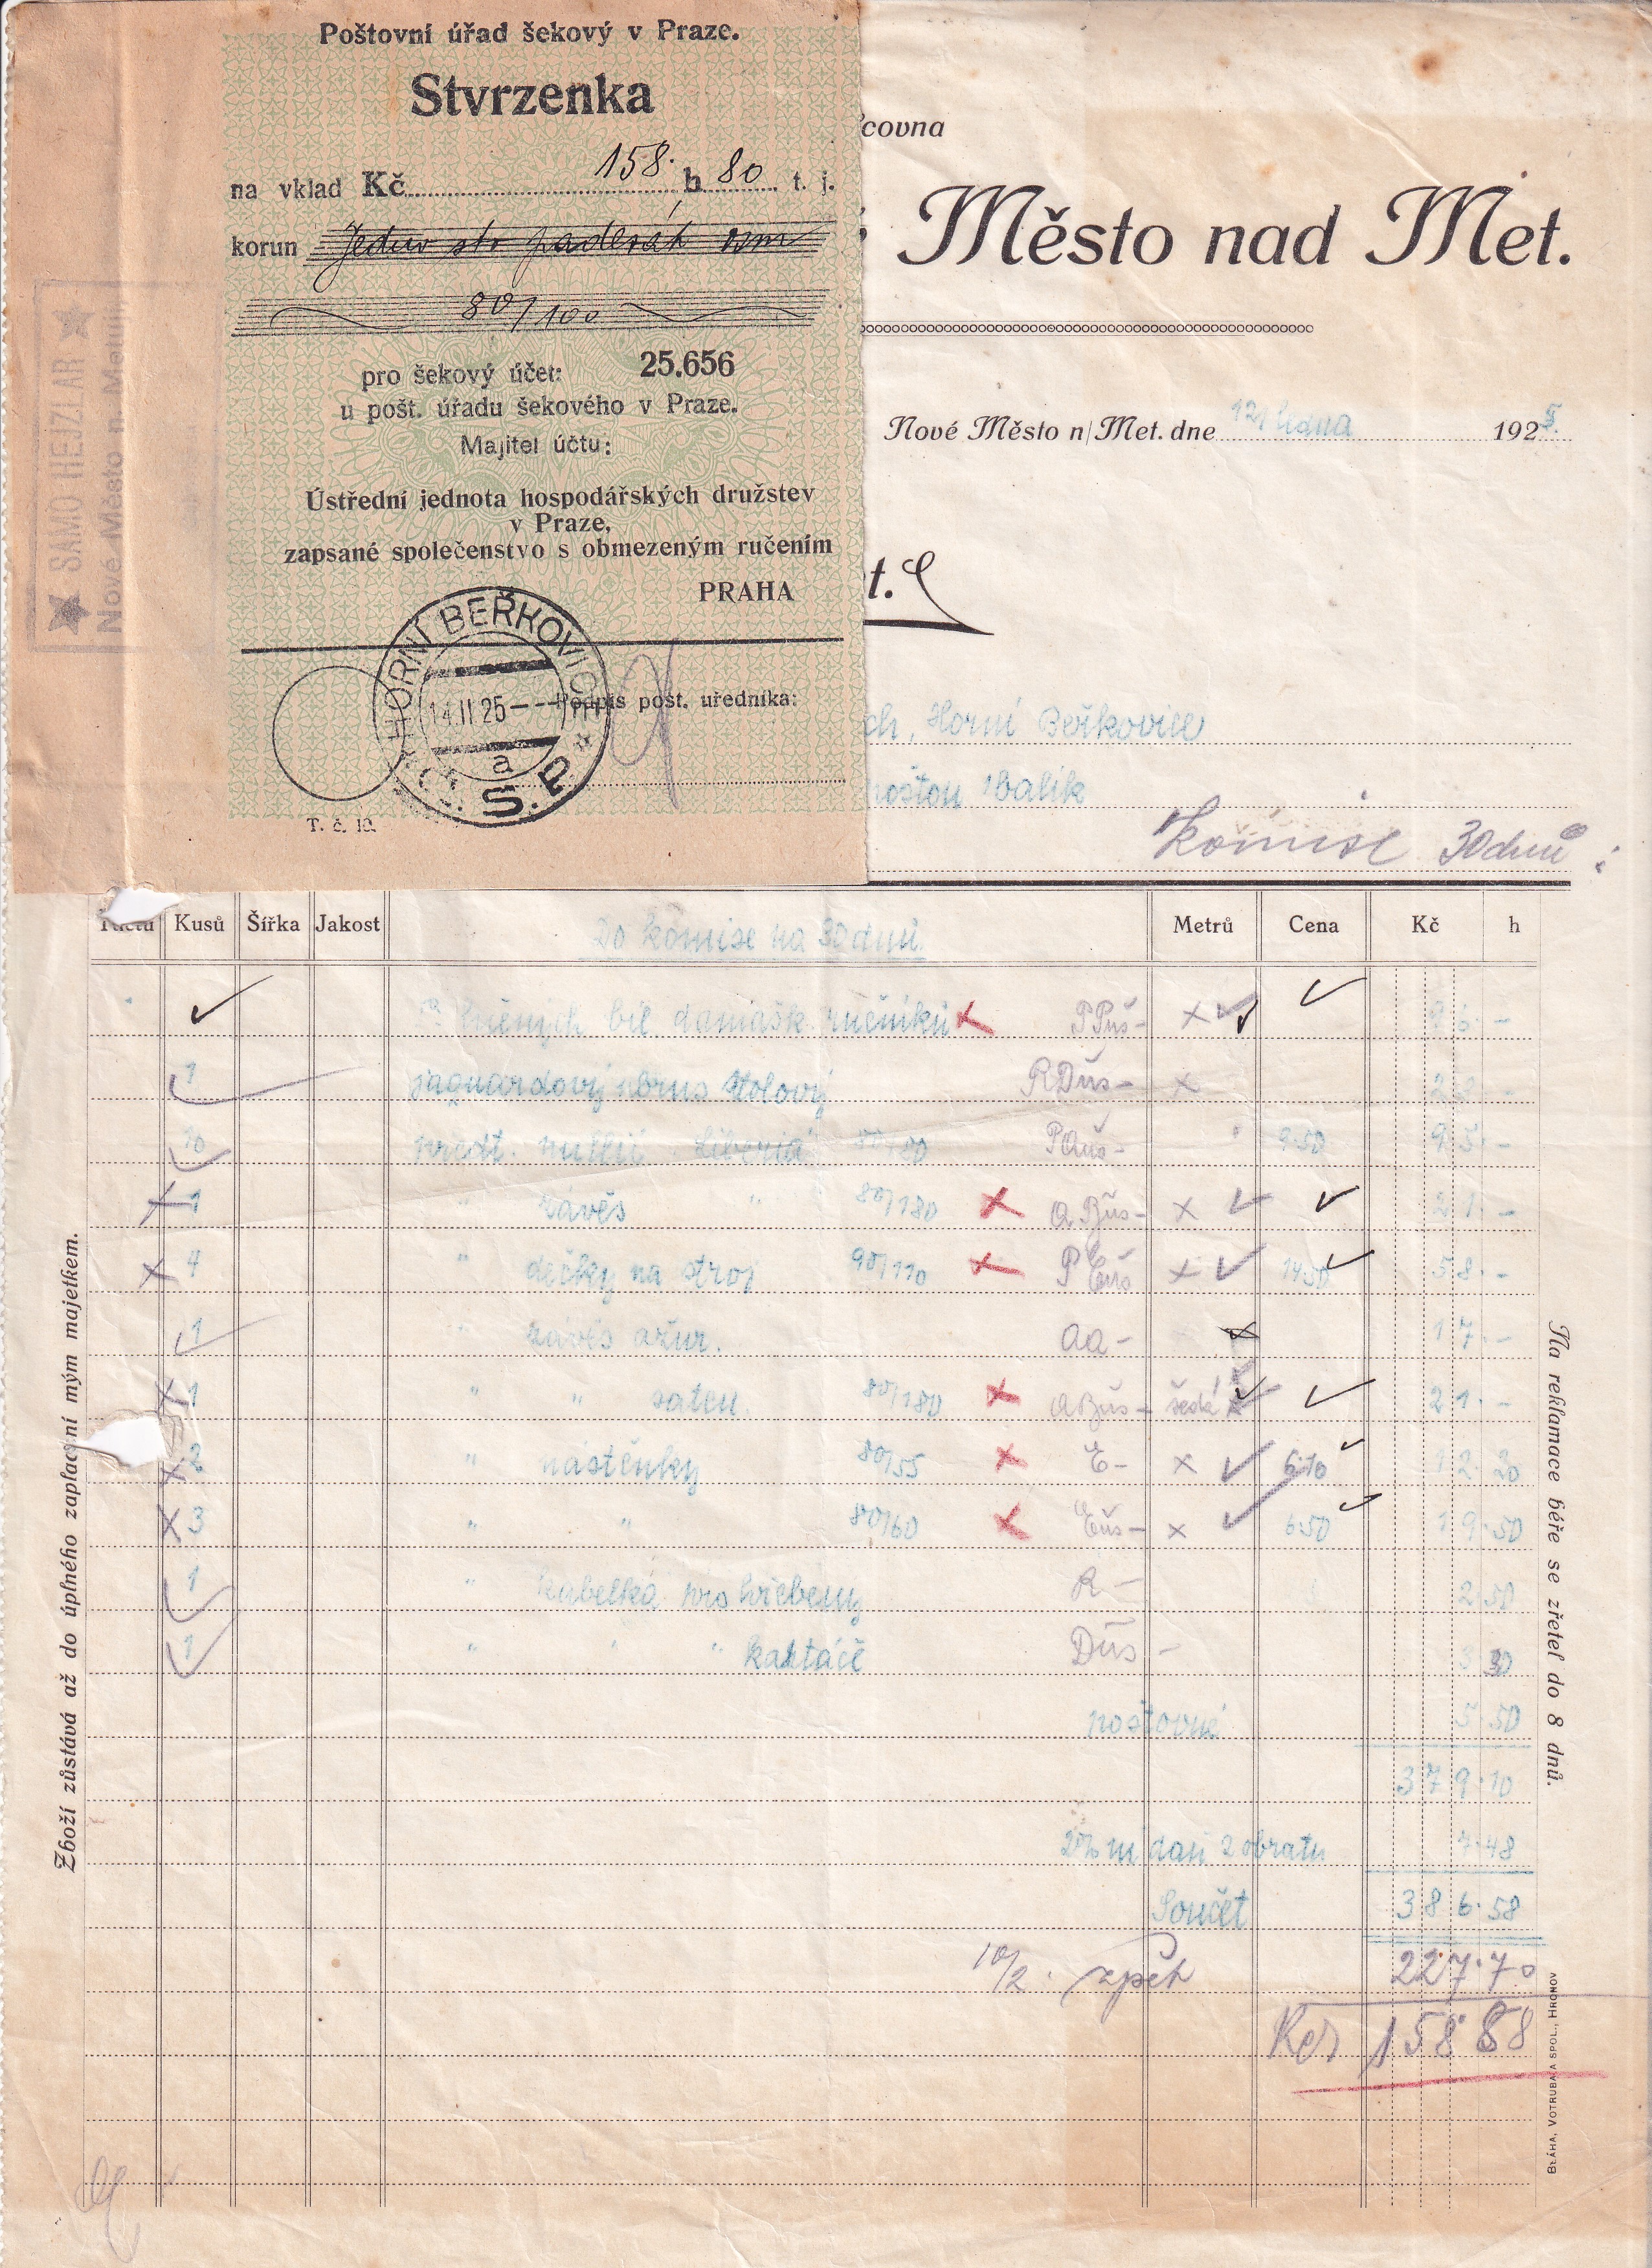 Poštovní úřad šekový v Praze.
Stvrzenka
na vklad Kč 158· h 80 t. j.
korun Jedno sto padesát osm
80/100
pro šekový účet: 25.656
u pošt. úřadu šekového v Praze.
Majitel účtu:
Ústřední jednota hospodářských družstev
v Praze,
zapsané společenstvo s obmezeným ručením
PRAHA
Podpis pošt. úředníka:
HORNÍ BEŘKOVICE
14.II 25
a
Č. S. P.
T. č. 10.
★ SAMO HEJZLAR ★
Nové Město n. Metují.
covna
Město nad Met.
Nové Město n/Met. dne 12/ ledna 1925.
t.
ch, Horní Beřkovice
poštou 1 balík
Komise 30 dnů
Kusů Šířka Jakost Do komise na 30 dnů. Metrů Cena Kč h
bíl damašk. ručníků PPuš- × 96·-
1 jaquardový ubrus stolový RDus- × 22·-
10 předt. Liberia 80/80 9·50 95·-
1 " závěs " 80/180 ABuš- × 21·-
4 " dečky na stroj 90/110 PEuš × 14·50 58·-
1 " závěs ažur. Aa- 17·-
1 " " saten. 80/180 ABuš- šedá 21·-
2 " nástěnky 80/55 E- × 6·10 12·20
3 " " 80/60 Euš- × 6·50 19·50
1 " kabelka pro hřebeny R- 2 50
1 " " " kartáče Dus- 3 30
poštovné 5 50
379·10
2% daň z obratu 7·48
Součet 386·58
10/2. zpět 227·70
Kčs 158 88
Zboží zůstává až do úplného zaplacení mým majetkem.
Na reklamace béře se zřetel do 8 dnů.
BLÁHA, VOTRUBA A SPOL., HRONOV